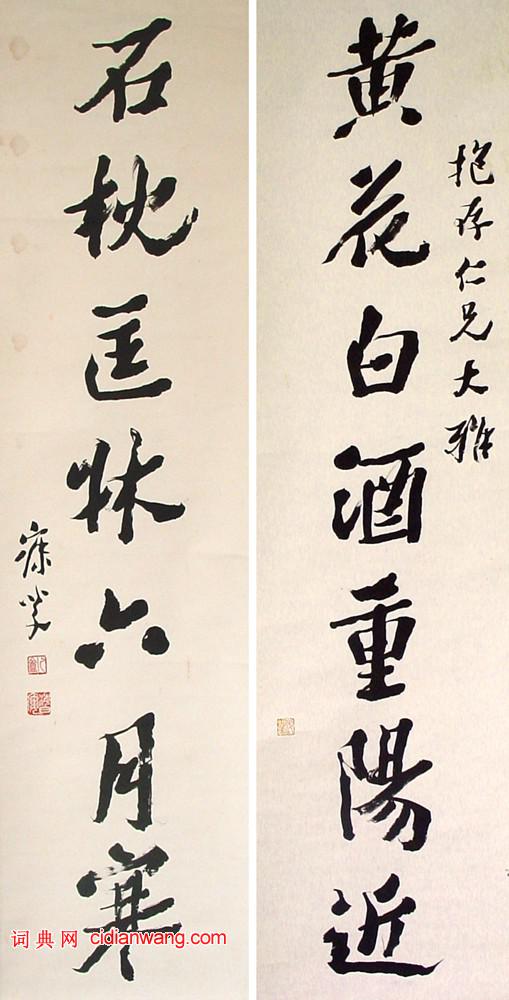 抱存仁兄大雅
黄花白酒重陽近
石枕匡牀六月寒
寐叟
词典网 cidianwang.com